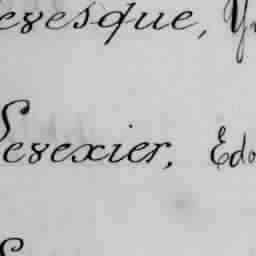 evesque,
Levexier, Edo